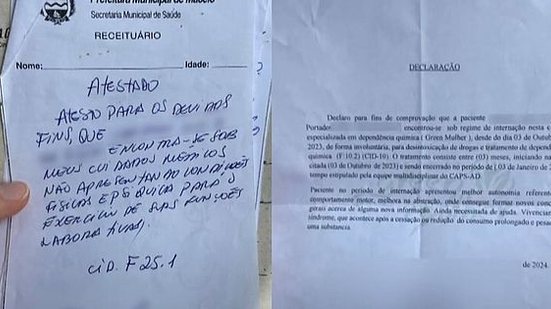 Prefeitura Municipal de Maceió
Secretaria Municipal de Saúde
RECEITUÁRIO
Nome: Idade:
ATESTADO
ATESTO PARA OS DEVIDOS
FINS, QUE
ENCONTRA-SE SOB
MEUS CUIDADOS MÉDICOS
NÃO APRESENTANDO CONDIÇÕES
FÍSICAS E PSÍQUICA PARA O
EXERCÍCIO DE SUAS FUNÇÕES
LABORATIVAS.
CID. F 25.1
DECLARAÇÃO
Declaro para fins de comprovação que a paciente
Portador encontrou-se sob regime de internação nesta
especializada em dependência química ( Green Mulher ), desde do dia 03 de Outu
2023, de forma involuntária, para desintoxicação de drogas e tratamento de depend
química (F:10.2) (CID-10). O tratamento consiste em (03) meses, iniciando na
citada (03 de Outubro de 2023) e sendo encerrado no período ( 03 de Janeiro de 2
tempo estipulado pela equipe multidisciplinar do CAPS-AD.
Paciente no período de internação apresentou melhor autonomia referent
comportamento motor, melhora na abstração, onde consegue formar novos concei
gerais acerca de alguma nova informação. Ainda necessitada de ajuda. Vivencian
síndrome, que acontece após a cessação ou redução do consumo prolongado e pesa
uma substancia.
de 2024.